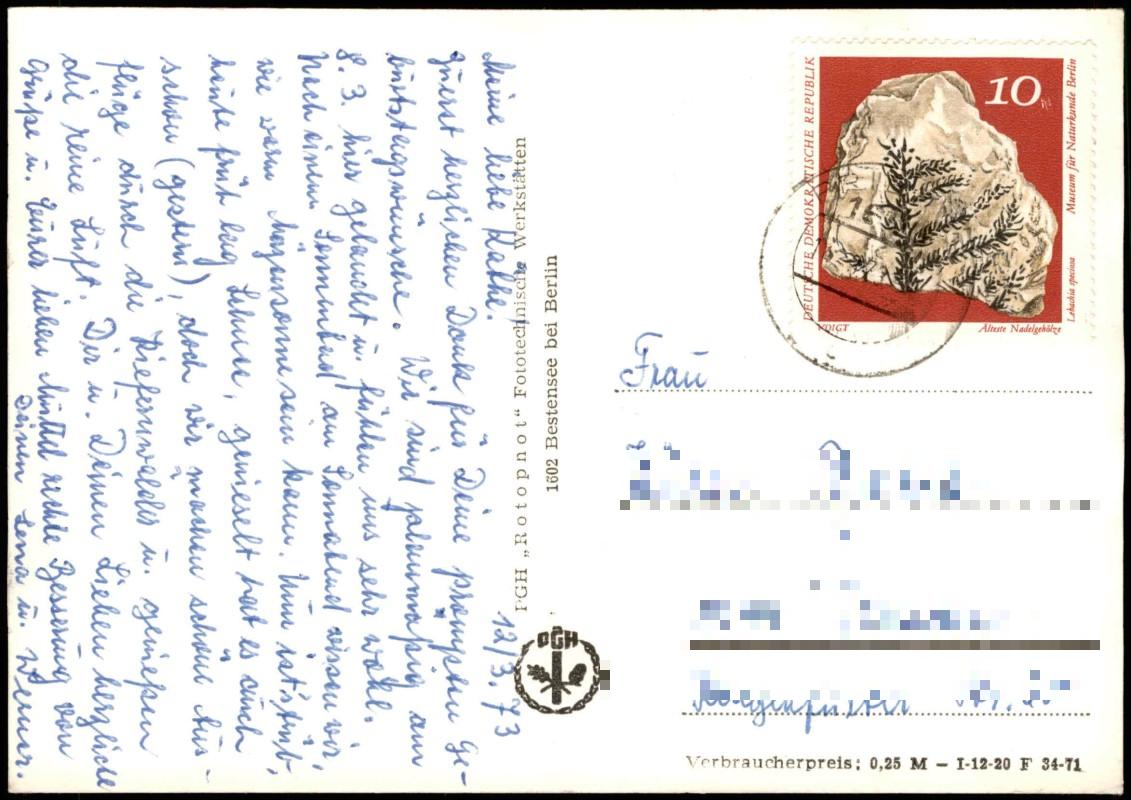 12/3. 73
Meine liebe Käthe.
Zuerst herzlichen Dank für Deine prompten Ge-
burtstagswünsche. Wir sind planmäßig am
8. 3. hier gelandet u. fühlen uns sehr wohl.
Nach einem Sonnenbad am Sonnabend wissen wir,
wie warm Märzensonne sein kann. Nun ist's trüb,
heute früh lag Schnee, genieselt hat es auch
schon (gestern), doch wir machen schöne Aus-
flüge durch die Kiefernwälder u. genießen
die reine Luft. Dir u. Deinen Lieben herzliche
Grüße u. Eurer lieben Mutter rechte Besserung von
Deinen Lena u. Werner.
PGH „Rotopnot“ Fototechnische Werkstätten
1602 Bestensee bei Berlin
PGH
DEUTSCHE DEMOKRATISCHE REPUBLIK
10
Museum für Naturkunde Berlin
Lebachia speciosa
VOIGT
Älteste Nadelgehölze
Frau
Verbraucherpreis: 0,25 M – I-12-20 F 34-71